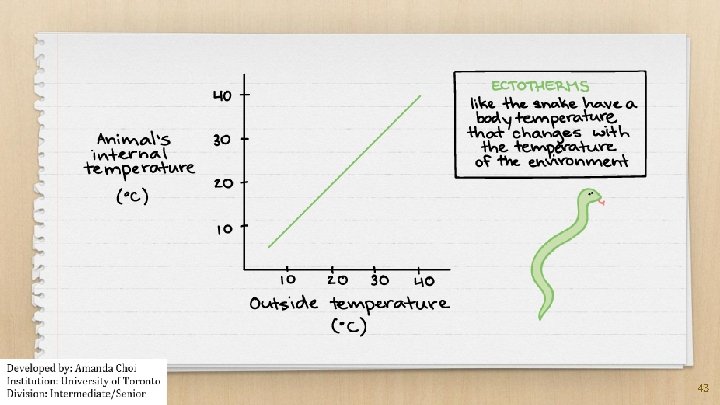 40
30
20
10
Animal's
internal
temperature
(°C)
10 20 30 40
Outside temperature
(°C)
ECTOTHERMS
like the snake have a
body temperature
that changes with
the temperature
of the environment
Developed by: Amanda Choi
Institution: University of Toronto
Division: Intermediate/Senior
43